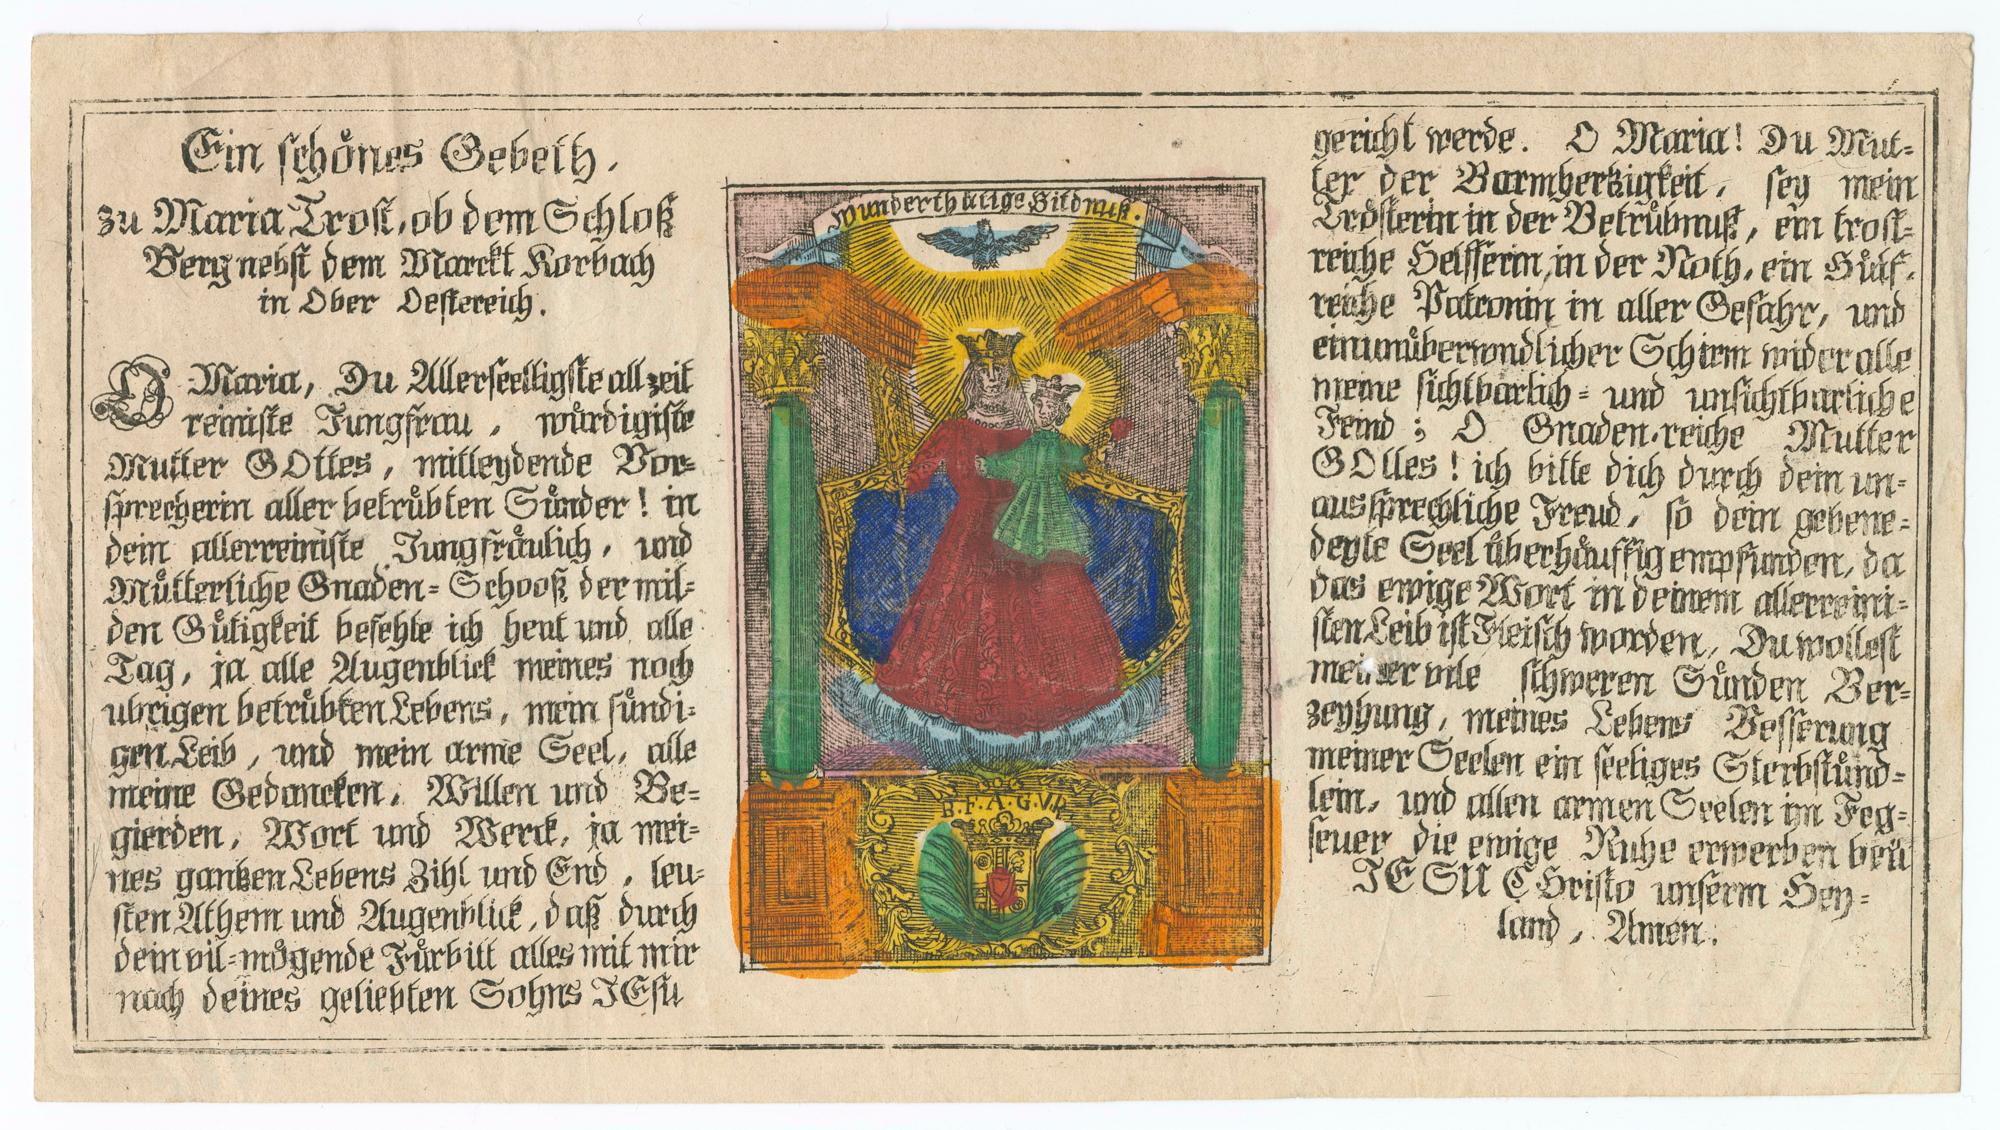 Ein schönes Gebeth.
zu Maria Trost, ob dem Schloß
Berg nebst dem Marckt Rorbach
in Ober Oestereich.
O Maria, Du Allerseelligste all zeit
reiniste Jungfrau, würdigiste
Mutter GOttes, mitleydende Vor-
sprecherin aller betrübten Sünder! in
dein allerreiniste Jungfräulich, und
Mütterliche Gnaden-Schooß der mil-
den Gütigkeit befehle ich heut und alle
Tag, ja alle Augenblick meines noch
ubrigen betrübten Lebens, mein sündi-
gen Leib, und mein arme Seel, alle
meine Gedancken, Willen und Be-
gierden, Wort und Werck, ja mei-
nes gantzen Lebens Zihl und End, leu-
sten Athem und Augenblick, daß durch
dein vil-mögende Fürbitt alles mit mir
nach deines geliebten Sohns JEsu
Wunderthätige Bildnuß.
B.F.A.G.V.R
gericht werde. O Maria! Du Mut-
ter der Barmhertzigkeit, sey mein
Trösterin in der Betrübnuß, ein trost-
reiche Helfferin, in der Noth, ein Hülf-
reiche Patronin in aller Gefahr, und
ein unüberwindlicher Schirm wider alle
meine sichtbarlich- und unsichtbarliche
Feind; O Gnaden-reiche Mutter
GOttes! ich bitte dich durch dein un-
aussprechliche Freud, so dein gebene-
deyte Seel überhäuffig empfunden, da
das ewige Wort in deinem allerreini-
sten Leib ist Fleisch worden, Du wollest
meiner vile schweren Sünden Ver-
zeyhung, meines Lebens Besserung
meiner Seelen ein seeliges Sterbstünd-
lein, und allen armen Seelen im Feg-
feuer die ewige Ruhe erwerben beü
JESU CHristo unserm Hey-
land, Amen.